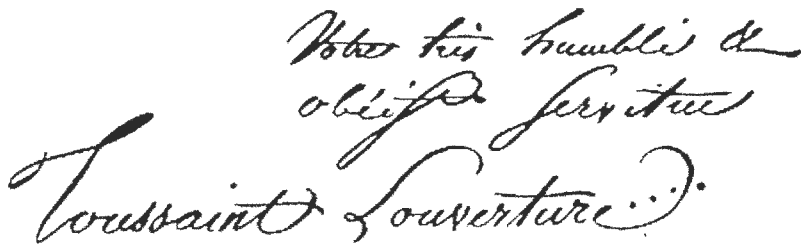 Votre très humble &
obéisst Serviteur
Toussaint Louverture